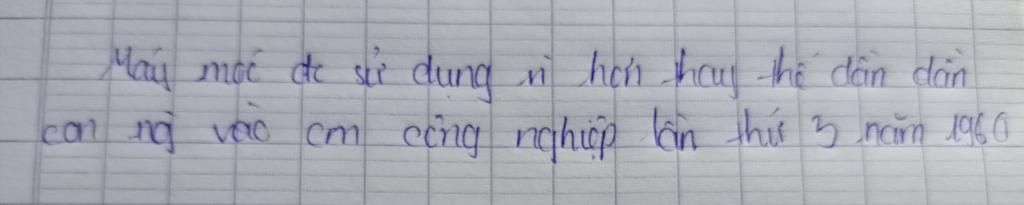 Máy móc đc sử dụng nì hơn thay thế dần dần
con ng vào cm công nghiệp lần thứ 3 năm 1960